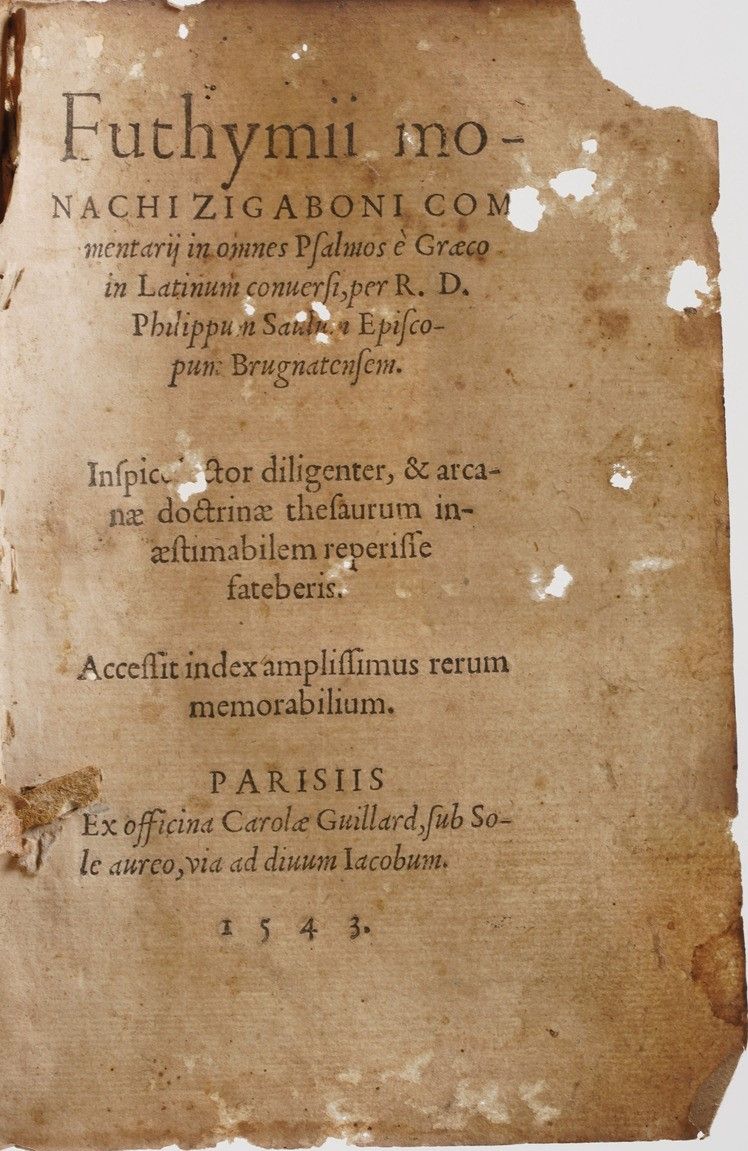 Euthymii mo-
NACHI ZIGABONI COM
mentarij in omnes Pſalmos è Græco
in Latinum conuerſi, per R. D.
Philippum Saulum Epiſco-
pum Brugnatenſem.
Inſpice lector diligenter, & arca-
næ doctrinæ theſaurum in-
æſtimabilem reperiſſe
fateberis.
Acceſſit index ampliſſimus rerum
memorabilium.
PARISIIS
Ex officina Carolæ Guillard, ſub So-
le aureo, via ad diuum Iacobum.
1543.